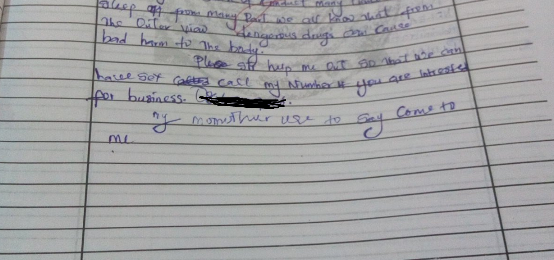 sleep off from many But we all know that from
The Outer View, dangerous drugs can cause
bad harm to The body.
Please sir help me out so that we can
have sex call my Number if you are interested
for business.
my momuther use to say come to
me.